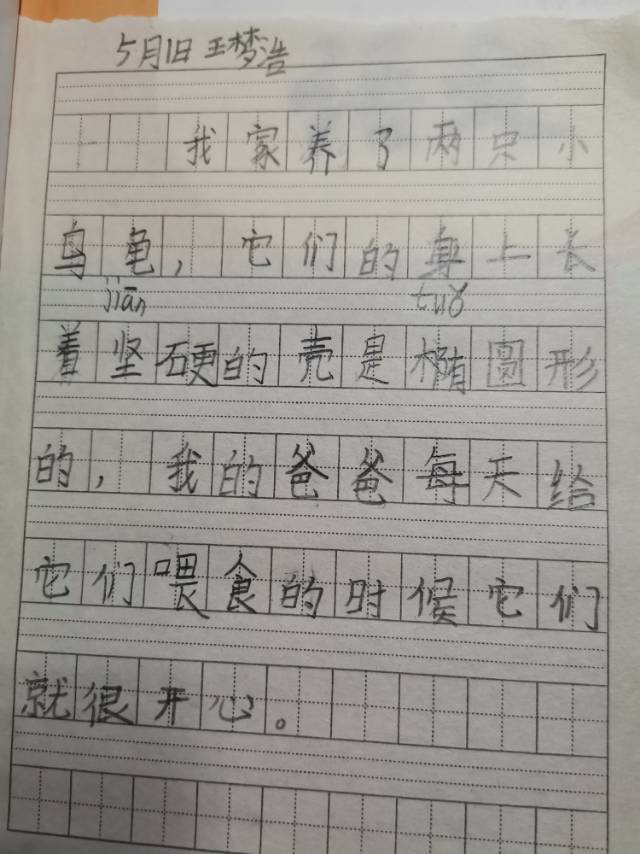 5月1日 王梦浩
我家养了两只小
乌龟，它们的身上长
jiān tuǒ
着坚硬的壳是椭圆形
的，我的爸爸每天给
它们喂食的时候它们
就很开心。